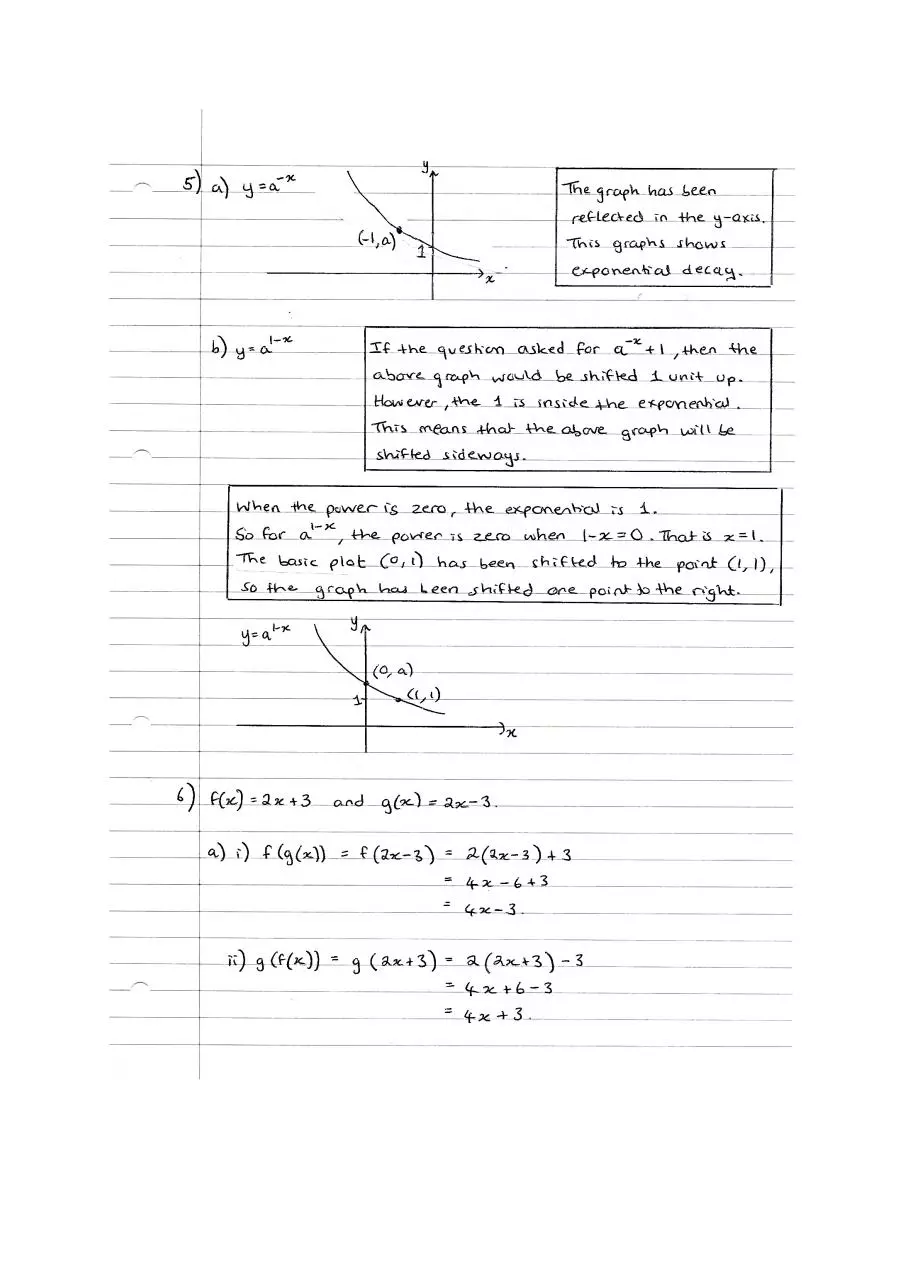 5) a) y = a⁻ˣ
y
(-1, a)
1
x
The graph has been
reflected in the y-axis.
This graphs shows
exponential decay.
b) y = a¹⁻ˣ
If the question asked for a⁻ˣ + 1, then the
above graph would be shifted 1 unit up.
However, the 1 is inside the exponential.
This means that the above graph will be
shifted sideways.
When the power is zero, the exponential is 1.
So for a¹⁻ˣ, the power is zero when 1-x = 0. That is x = 1.
The basic plot (0, 1) has been shifted to the point (1, 1),
so the graph has been shifted one point to the right.
y = a¹⁻ˣ
y
(0, a)
1
(1, 1)
x
6) f(x) = 2x + 3 and g(x) = 2x - 3.
a) i) f(g(x)) = f(2x-3) = 2(2x-3) + 3
= 4x - 6 + 3
= 4x - 3.
ii) g(f(x)) = g(2x+3) = 2(2x+3) - 3
= 4x + 6 - 3
= 4x + 3.